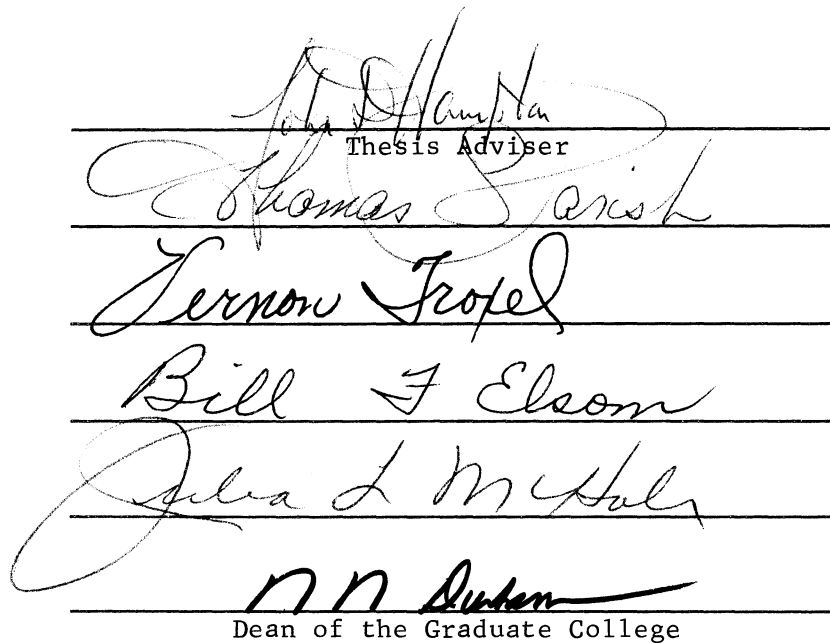 John D Hampton
Thesis Adviser
Thomas Parish
Vernon Troxel
Bill F Elsom
Julia L McHale
N N Durham
Dean of the Graduate College